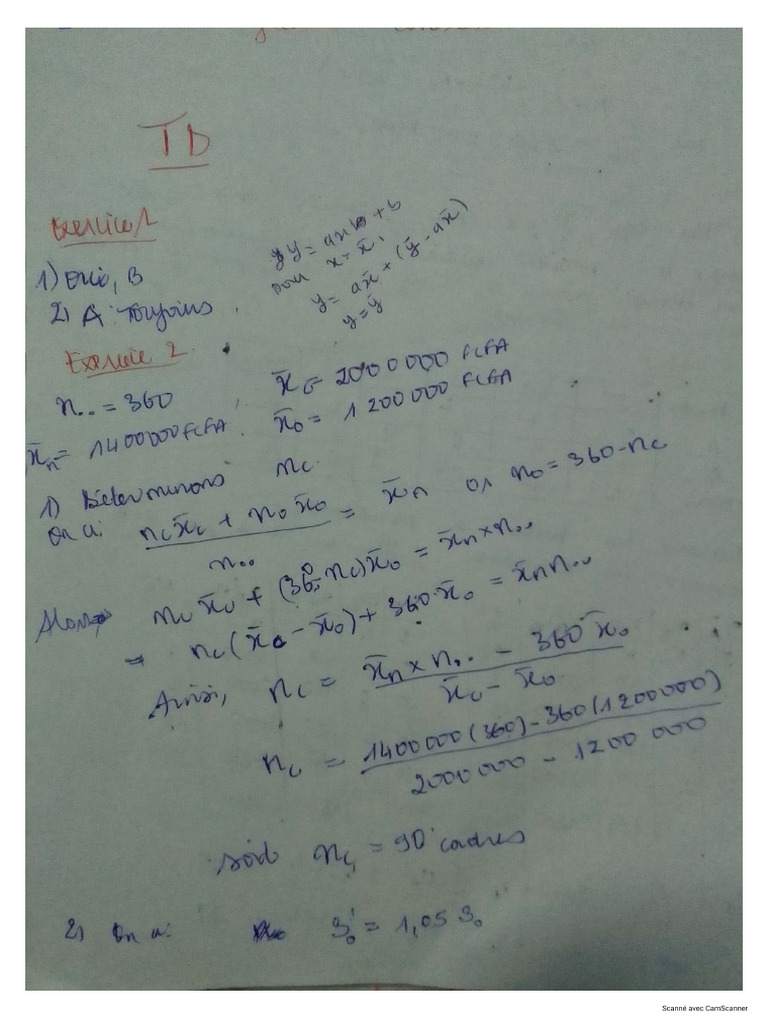 TD
Exercice 1
1) Oui, B
2) A : Toujours
y = ax + b
Pour x = x̄,
y = ax̄ + (ȳ - ax̄)
y = ȳ
Exercice 2
n.. = 360 , x̄c = 2000000 FCFA
x̄n = 1400000 FCFA . x̄o = 1200000 FCFA
1) Déterminons nc
On a: (nc x̄c + no x̄o) / n.. = x̄n or no = 360 - nc
Alors nc x̄c + (360 - nc) x̄o = x̄n × n..
⇒ nc (x̄c - x̄o) + 360 · x̄o = x̄n n..
Ainsi, nc = (x̄n × n.. - 360 x̄o) / (x̄c - x̄o)
nc = (1400000 (360) - 360 (1200000)) / (2000000 - 1200000)
soit nc = 90 cadres
2) On a: S'o = 1,05 So
Scanné avec CamScanner